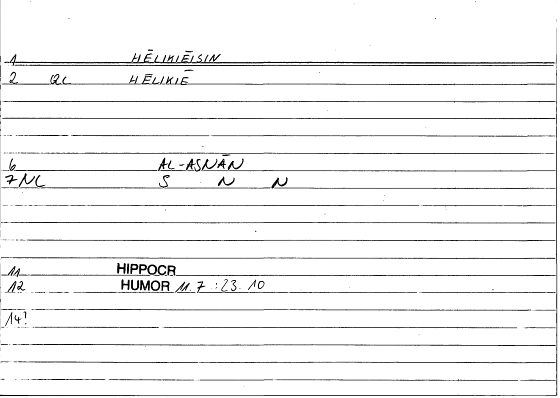 1 HĒLIKIĒISIN
2 QL HĒLIKIĒ
6 AL-ASNĀN
7 NL S N N
11 HIPPOCR
12 HUMOR 11 7 : 23. 10
14!